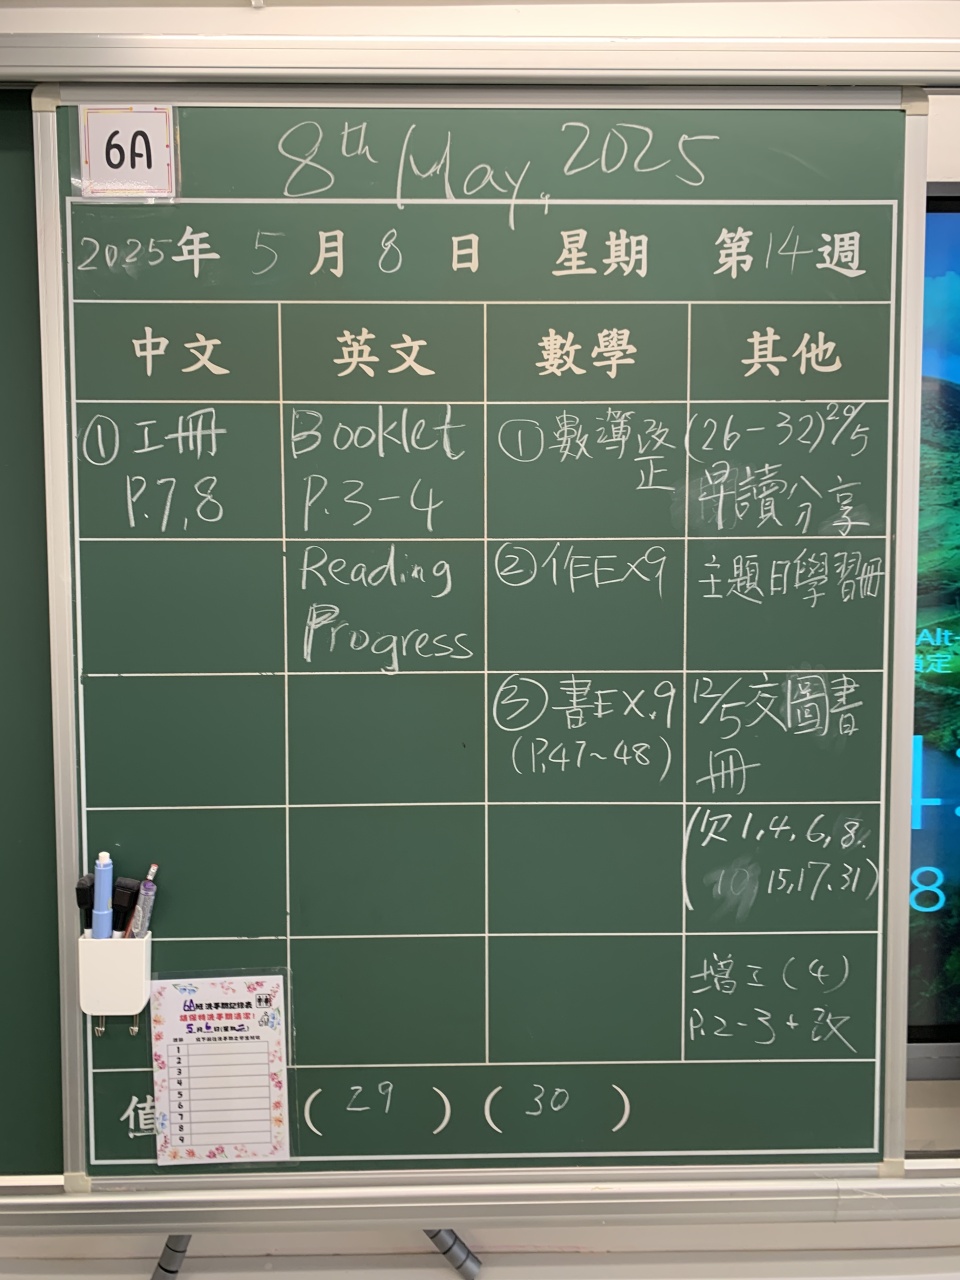 6A
8th May, 2025
2025年 5月8日 星期 第14週
中文 英文 數學 其他
①工冊
P.7,8
Booklet
P.3-4
Reading
Progress
①數簿改
正
②作Ex9
③書Ex.9
(P.47~48)
(26-32)20/5
早讀分享
主題日學習冊
12/5交圖書
冊
(欠1,4,6,8,
10 15,17,31)
增工(4)
P.2-3+改
值 (29) (30)
6A班洗手間記錄表
請保持洗手間清潔!
5月6日(星期二)
1
2
3
4
5
6
7
8
9
Alt-
鎖定
8